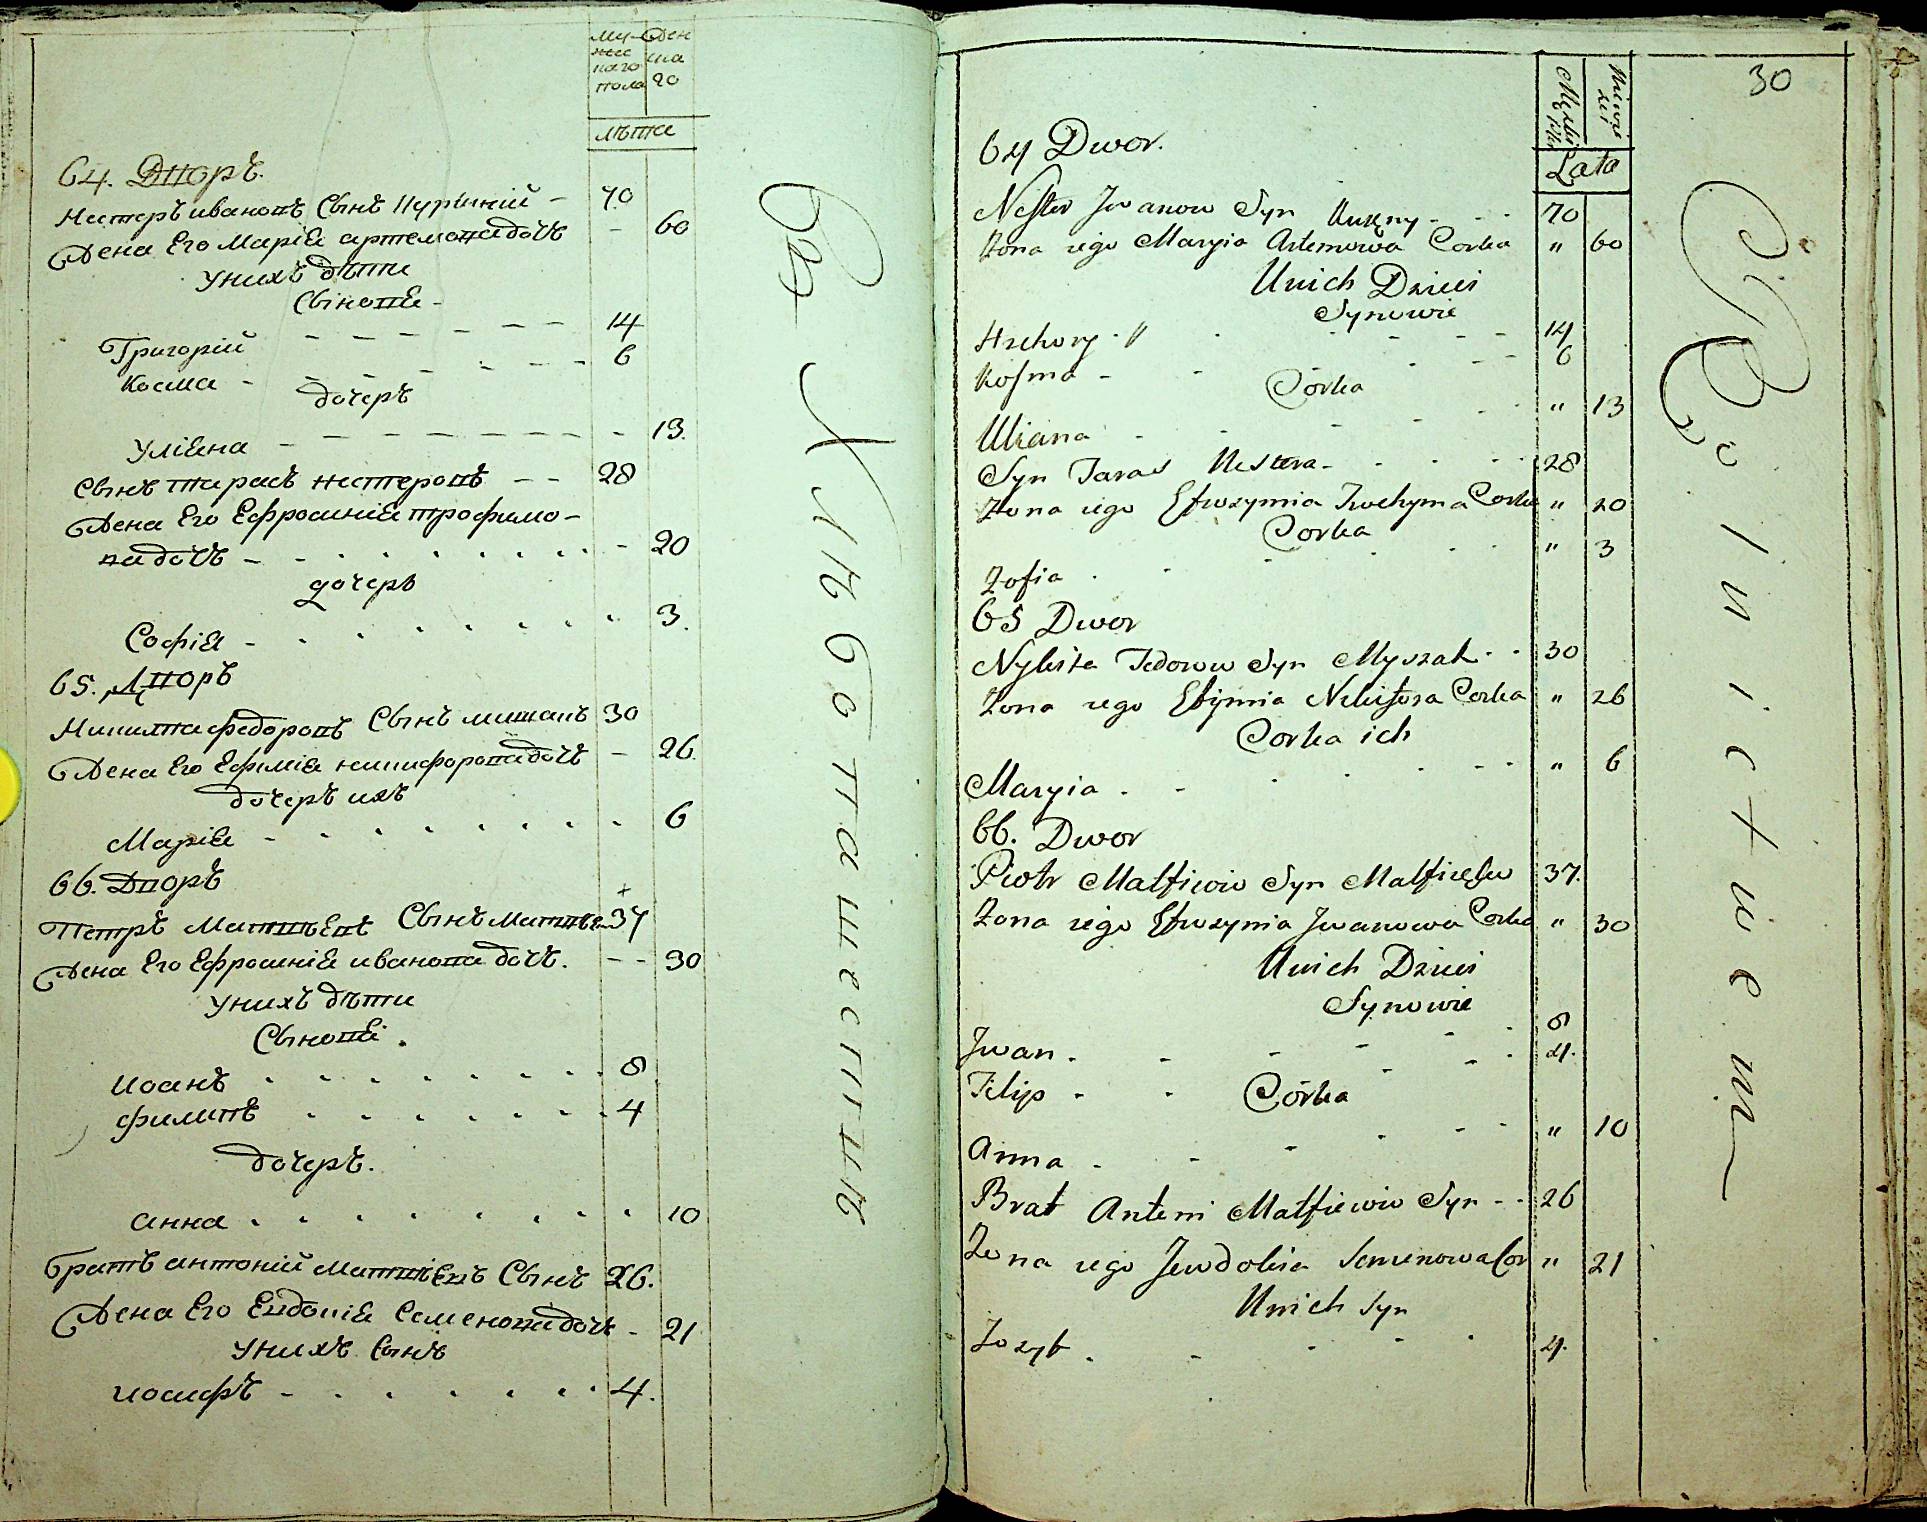 му- жен
жес ска
каго го
пола
лѣта
64. Дворъ.
Нестеръ ивановъ Сынъ - 70
жена Его Маріѧ артемова дочь - 60
У нихъ дѣти
Сыновѣ -
Григорій - - - - - - 14
Косма - - - - - - - 6
дочерь
Уліѧна - - - - - - - - 13.
Сынъ тарасъ нестеровъ - - 28
жена Его Ефросиніѧ трофимо-
ва дочь - - . . . . . . . - 20
дочерь
Софіѧ - . . . . . . . 3.
65. Дворъ
Никита федоровъ Сынъ мишакъ 30
жена Его Ефиміѧ никифорова дочь - 26.
дочерь ихъ
Маріѧ - . . . . . . . 6
66. Дворъ
+
Петръ Матвѣевъ Сынъ Матвѣев 37
жена Его Ефросиніѧ иванова дочь. - - 30
У нихъ дѣти
Сыновѣ .
Иоанъ . . . . . . . . 8
филипъ . . . . . . . 4
дочерь.
анна . . . . . . . . 10
братъ антоній Матвѣевъ Сынъ 26.
жена Его Евдокіѧ Семенова дочь - 21
У нихъ Сынъ
иосифъ - . . . . . . 4.
Съ Жит
бопашеств
30
Męzki
Lata
64 Dwor.
Nester Jwanow Syn - . . 70
Zona iego Maryia Artemowa Corka " 60
Unich Dzieci
Synowie
Hrehory . " . - - - 14
Kosma - - . . - - 6
Corka
Uliana . - - - . . " 13
Syn Taras Nestera - . . . . 28
Zona iego Efrozymia Corka " 20
Corka
Zofia . - - . . . " 3
65 Dwor
Nykita Fedorow Syn Myszak . . 30
Zona iego Efymia Corka " 26
Corka ich
Maryia . - . . . - - " 6
66. Dwor
Piotr Matfieiw Syn 37.
Zona iego Efrozynia Jwanowa Corka " 30
Unich Dzieci
Synowie
Jwan . - - - - . 8
Filip - . - - . 4.
Córka
Anna . - - - - - " 10
Brat Anteni Matfieiw Syn - - 26
Zona iego Jewdokia Semenowa Cor " 21
Unich Syn
Jozyf . - . - . 4.
z Rolnictwem